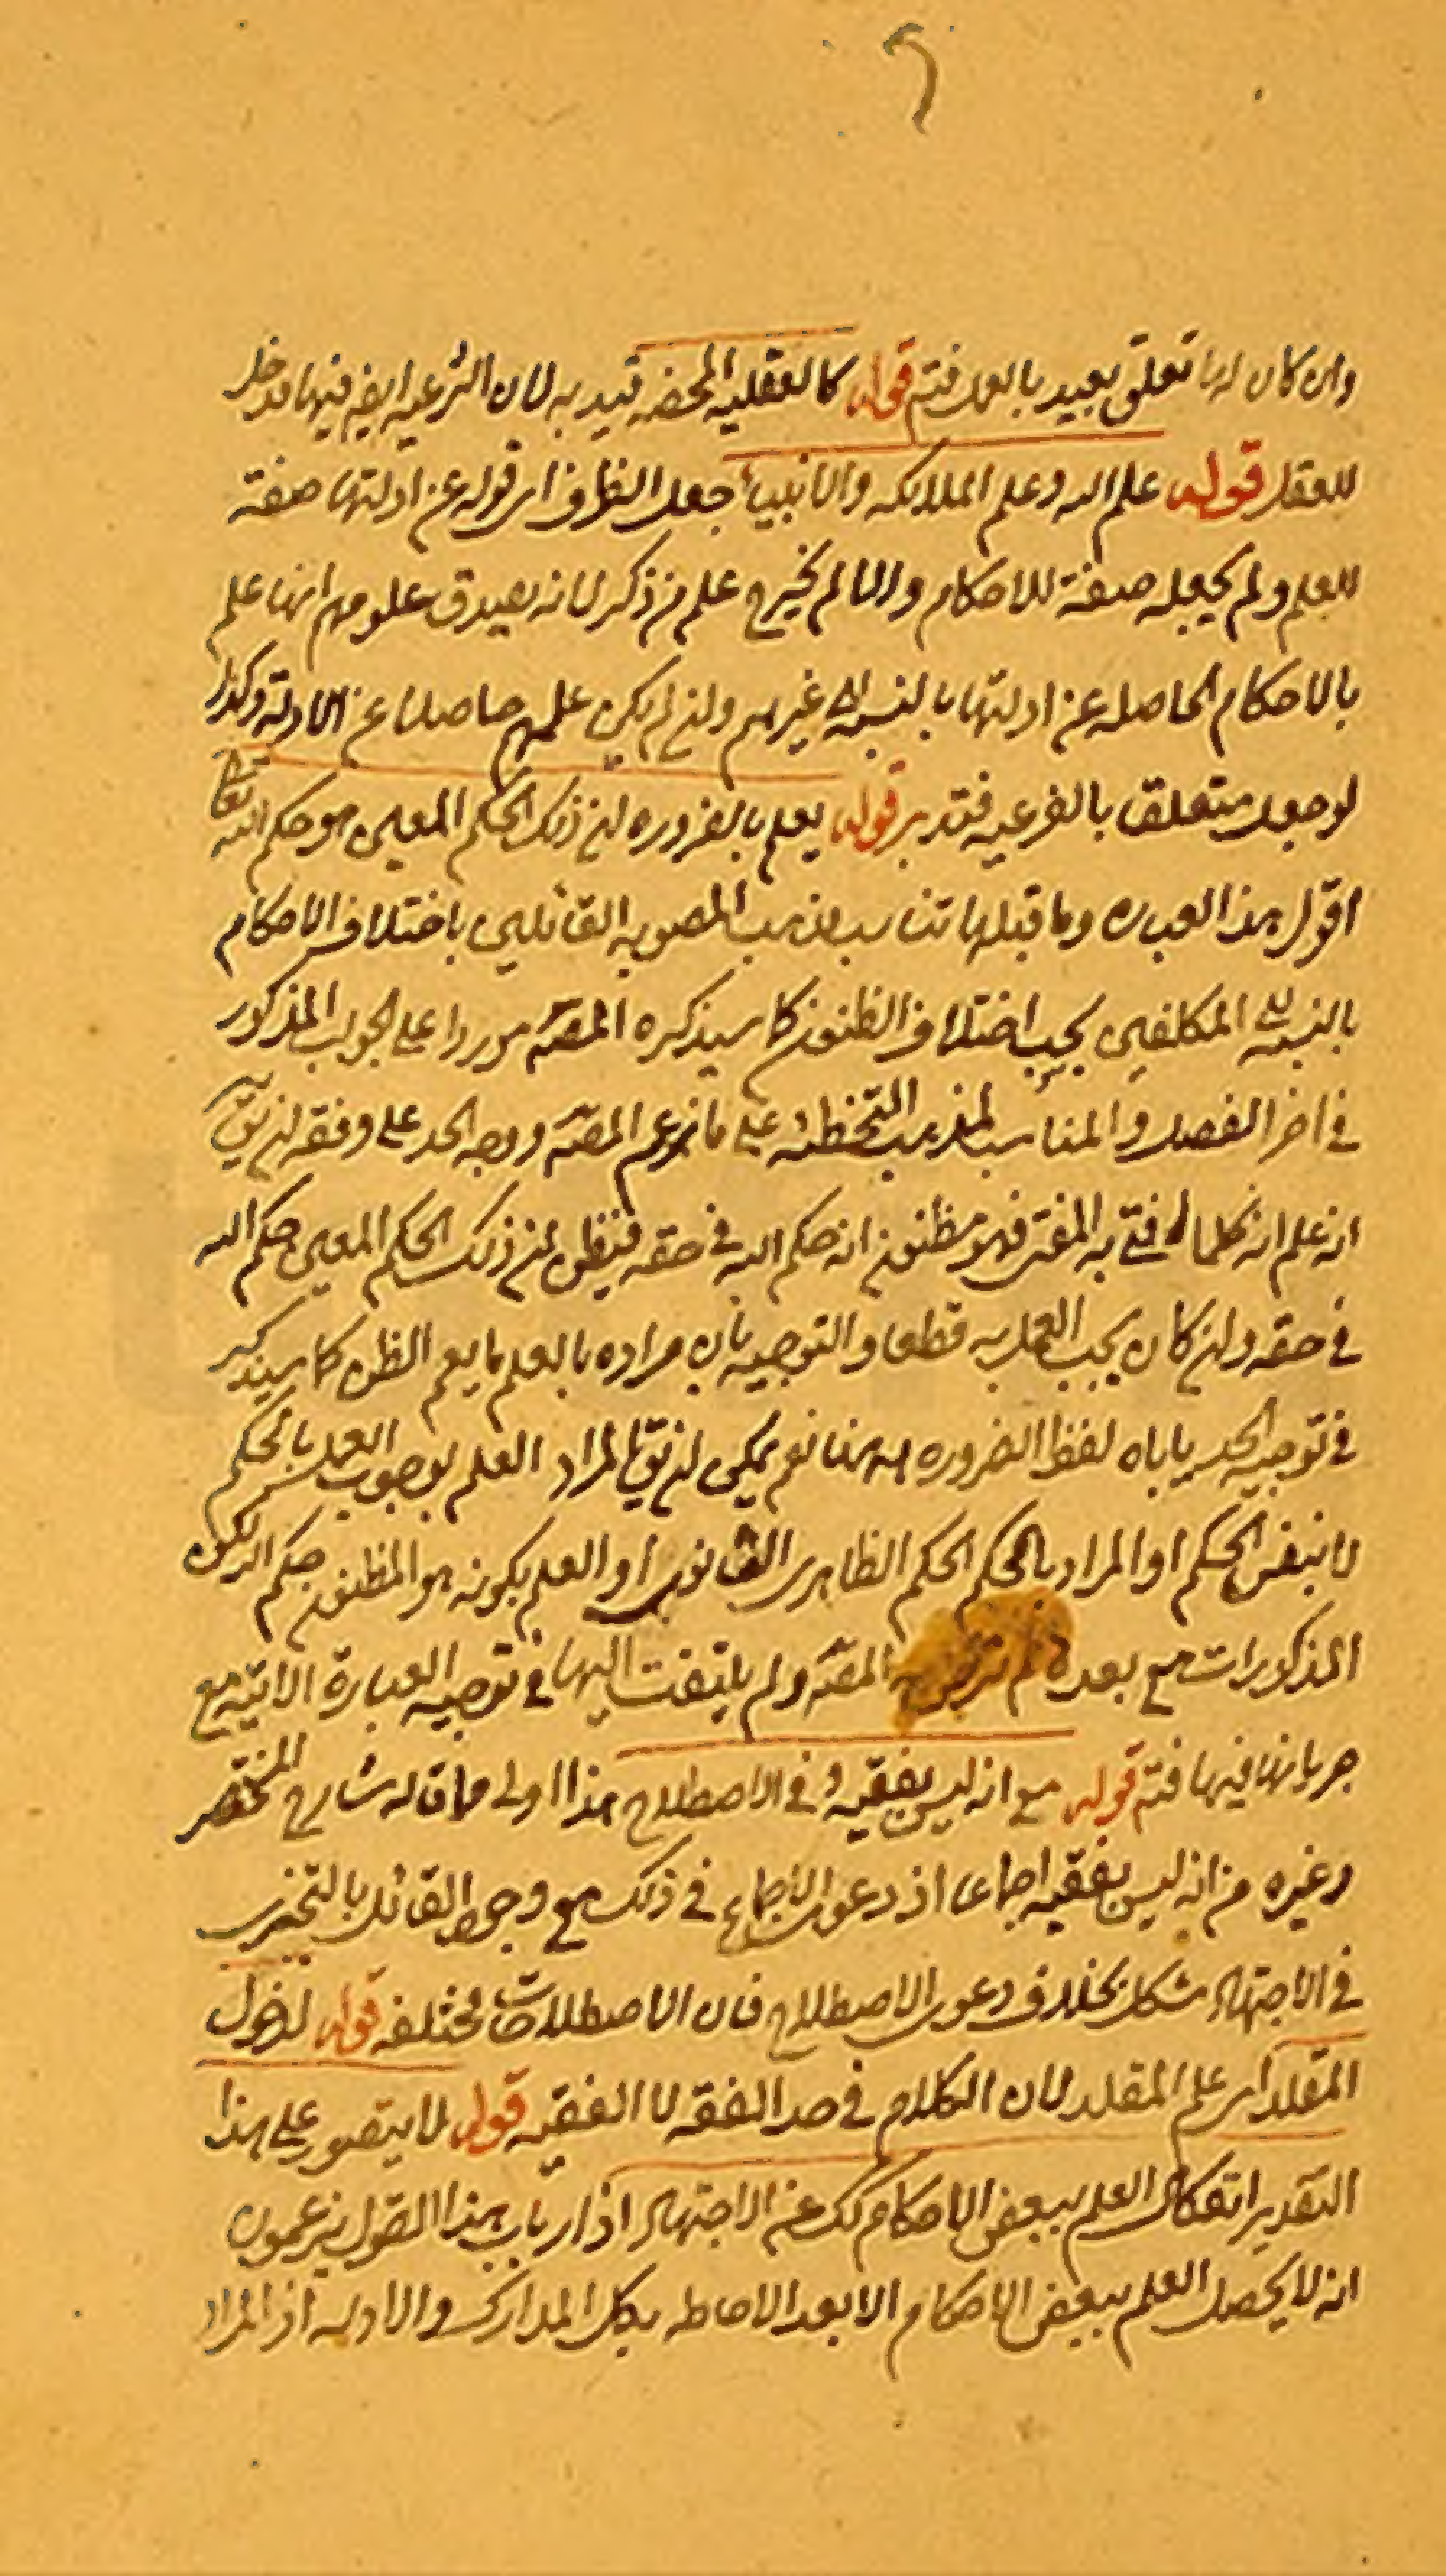 وان كان لها تعلق بعيد بالعمل فتم قوله كالعقليه المحضه قيد به لان الشرعيه ايض فيها مدخل
للعقل قوله علم الله وعلم الملائكه والانبياء جعل الظرف اى قوله عن ادلتها صفة
للعلم ولم يجعله صفة للاحكام والا لم يخرج علم من ذكر لانه يصدق علومهم انها علم
بالاحكام الحاصله عن ادلتها بالنسبة الى غيرهم وان لم يكن علمهم حاصلا عن الادلة وكذا
لو جعل متعلقا بالفرعيه فتدبر قوله يعلم بالضروره ان ذلك الحكم المعين هو حكم الله تعا
اقول هذا العباره وما قبلها تناسب مذهب المصوبه القائلين باختلاف الاحكام
بالنسبة الى المكلفين بحسب اختلاف الظنون كما سيذكره المصنف موردا على الجواب المذكور
في اخر الفصل والمناسب لمذهب التخطئه على ما زعم المصنف ووجه الحد على وفقه ان يق
انه علم انه كلما افتى به المفتى فهو مظنون انه حكم الله في حقه فيظن ان ذلك الحكم المعين حكم الله
في حقه وان كان يجب العمل به قطعا والتوجيه بان مراده بالعلم ما يعم الظن كما سيذكر
في توجيه الحد ياباه لفظ الضروره ههنا نعم يمكن ان يق المراد العلم بوجوب العمل بالحكم
لا بنفس الحكم او المراد بالحكم الحكم الظاهرى القانونى او العلم بكونه هو المظنون حكم الله لكن
المذكورات مع بعده لم المصنف ولم يلتفت اليها في توجيه العبارة الاتيه مع
جريانها فيها فتم قوله مع انه ليس بفقيه في الاصطلاح هذا اولى مما قاله شارح المختصر
وغيره من انه ليس بفقيه اجماعا اذ دعوى الاجماع في ذلك مع وجود القائل بالتجزى
في الاجتهاد مشكل بخلاف دعوى الاصطلاح فان الاصطلاحات مختلفه قوله لدخول
المقلد اى علم المقلد لان الكلام في حد الفقه لا الفقيه قوله لا يتصور على هذا
التقدير انفكاك العلم ببعض الاحكام كك عن الاجتهاد اذ ارباب هذا القول يزعمون
انه لا يحصل العلم ببعض الاحكام الا بعد الاحاطه بكل المدارك والادله اذ المراد